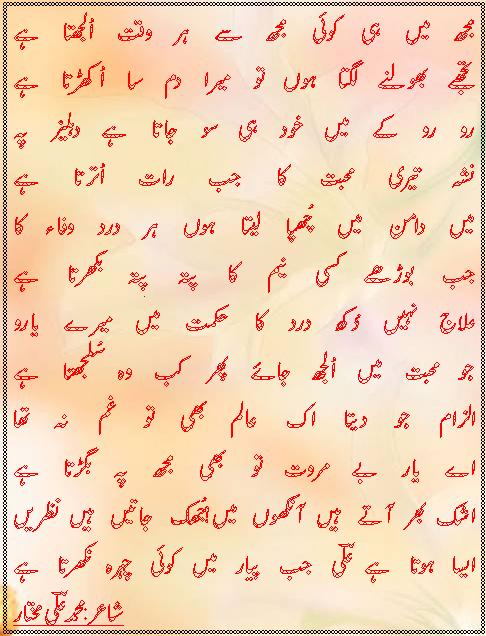 مجھ میں ہی کوئی مجھ سے ہر وقت اُلجھتا ہے
تجھے بھولنے لگتا ہوں تو میرا دم سا اُکھڑتا ہے
رو رو کے میں خود ہی سو جاتا ہے دہلیز پہ
نشہ تیری محبت کا جب رات اُترتا ہے
میں دامن میں چُھپا لیتا ہوں ہر درد وفاء کا
جب بوڑھے کسی نیم کا پتہ پتہ بکھرتا ہے
علاج نہیں دُکھ درد کا حکمت میں میرے یارو
جو محبت میں اُلجھ جائے پھر کب وہ سُلجھتا ہے
الزام جو دیتا اک عالم بھی تو غم نہ تھا
اے یار بے مروت تو بھی مجھ پہ بگڑتا ہے
اشک بھر آتے ہیں آنکھوں میں جُھک جاتیں ہیں نظریں
ایسا ہوتا ہے علی جب پیار میں کوئی چہرہ نکھرتا ہے
شاعر: محمد علی مختار